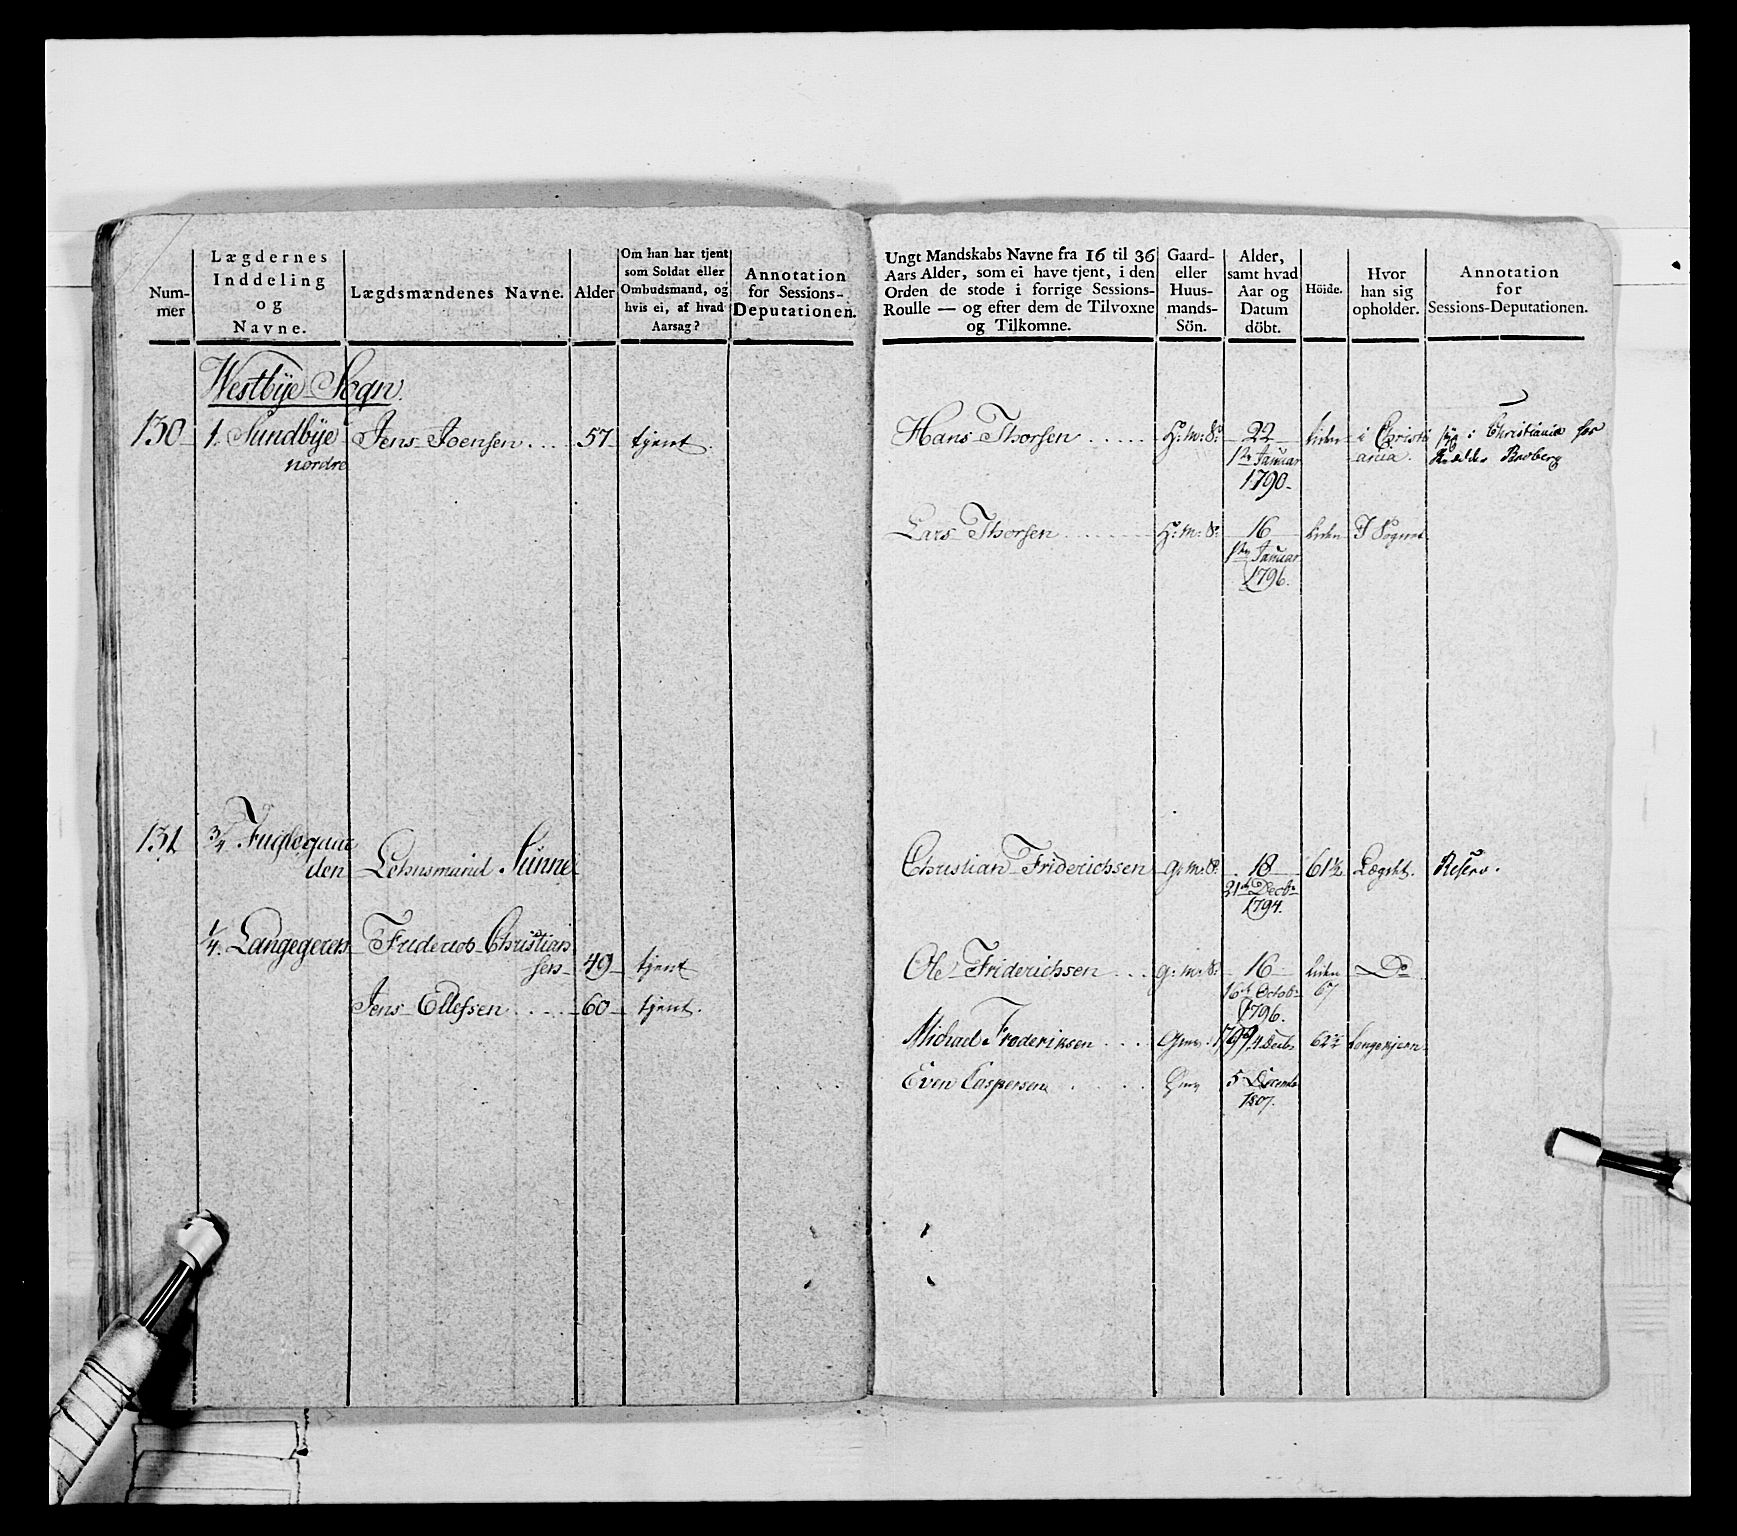 Num-
mer
Lægdernes
Inddeling
og
Navne.
Lægdsmændenes Navne.
Alder
Om han har tjent
som Soldat eller
Ombudsmand, og
hvis ei, af hvad
Aarsag?
Annotation
for Sessions-
Deputationen.
Westbÿe Sogn.
130 1. Sundbÿe Jens Joensen 57 tjent.
nordre
131 3/4 Fuglegaar
den Lehnsmand Sünne
1/4. Langegeren Friderich Christian
sen 49 tjent
Jens Ellefsen 60 tjent.
Ungt Mandskabs Navne fra 16 til 36
Aars Alder, som ei have tjent, i den
Orden de stode i forrige Sessions-
Roulle — og efter dem de Tilvoxne
og Tilkomne.
Gaard-
eller
Huus-
mands-
Sön.
Alder,
samt hvad
Aar og
Datum
döbt.
Höide.
Hvor
han sig
opholder.
Annotation
for
Sessions-Deputationen.
Hans Thorsen H:m:S: 22 liden i Christi
ania. i Christiania hos
1ste Januar
1790
Lars Thorsen H:m:S: 16 liden I Sognet
1ste Januar
1796.
Christian Friderichsen G:m:S: 18 61½ Lægdet. Reserv.
21de Decbr
1794.
Ole Friderichsen G:m:S: 16 liden Do
16de Octob 67
1796.
Michael Frederiksen Gmr. 1799, 4 Decb. 62½
Even Caspersen Gmr 5 Decemb
1807.